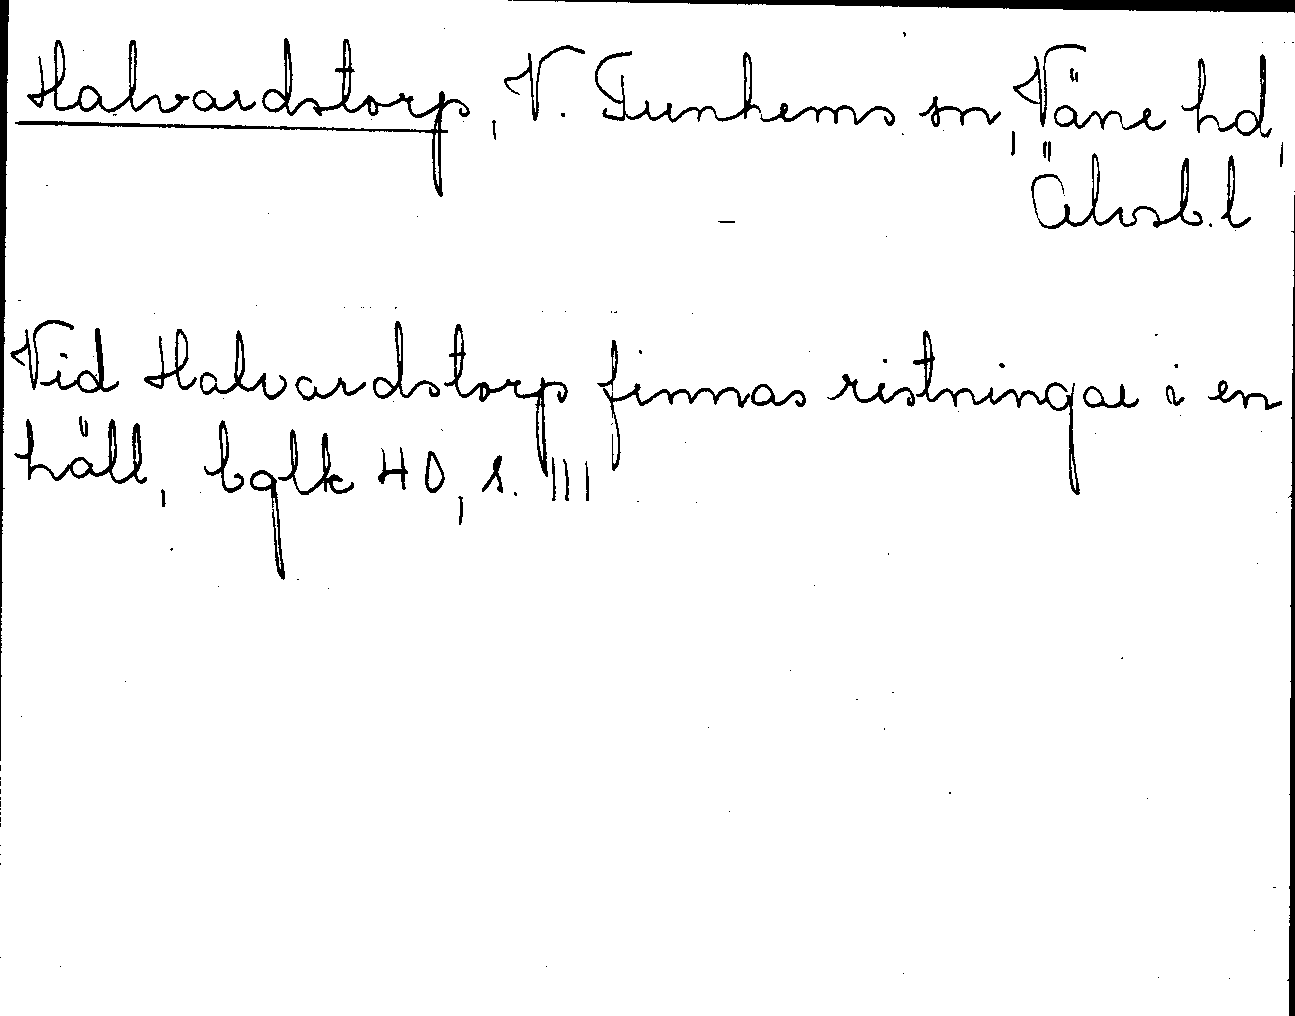 Halvardstorp, V. Tunhems sn, Väne hd,
Älvsb. l
Vid Halvardstorp finnas ristningar i en
häll, bglk 40, s. 111